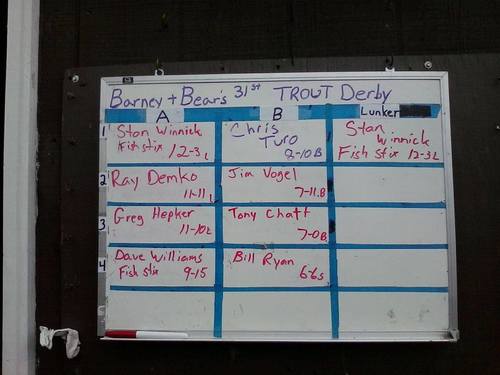 Barney + Bear's 31st TROUT Derby
A B Lunker
1 Stan Winnick Chris Turo Stan Winnick
Fish stix 12-3L 9-10B Fish stix 12-3L
2 Ray Demko Jim Vogel
11-11L 7-11.B
3 Greg Hepker Tony Chatt
11-10L 7-0B
4 Dave Williams Bill Ryan
Fish stix 9-15 6-6s